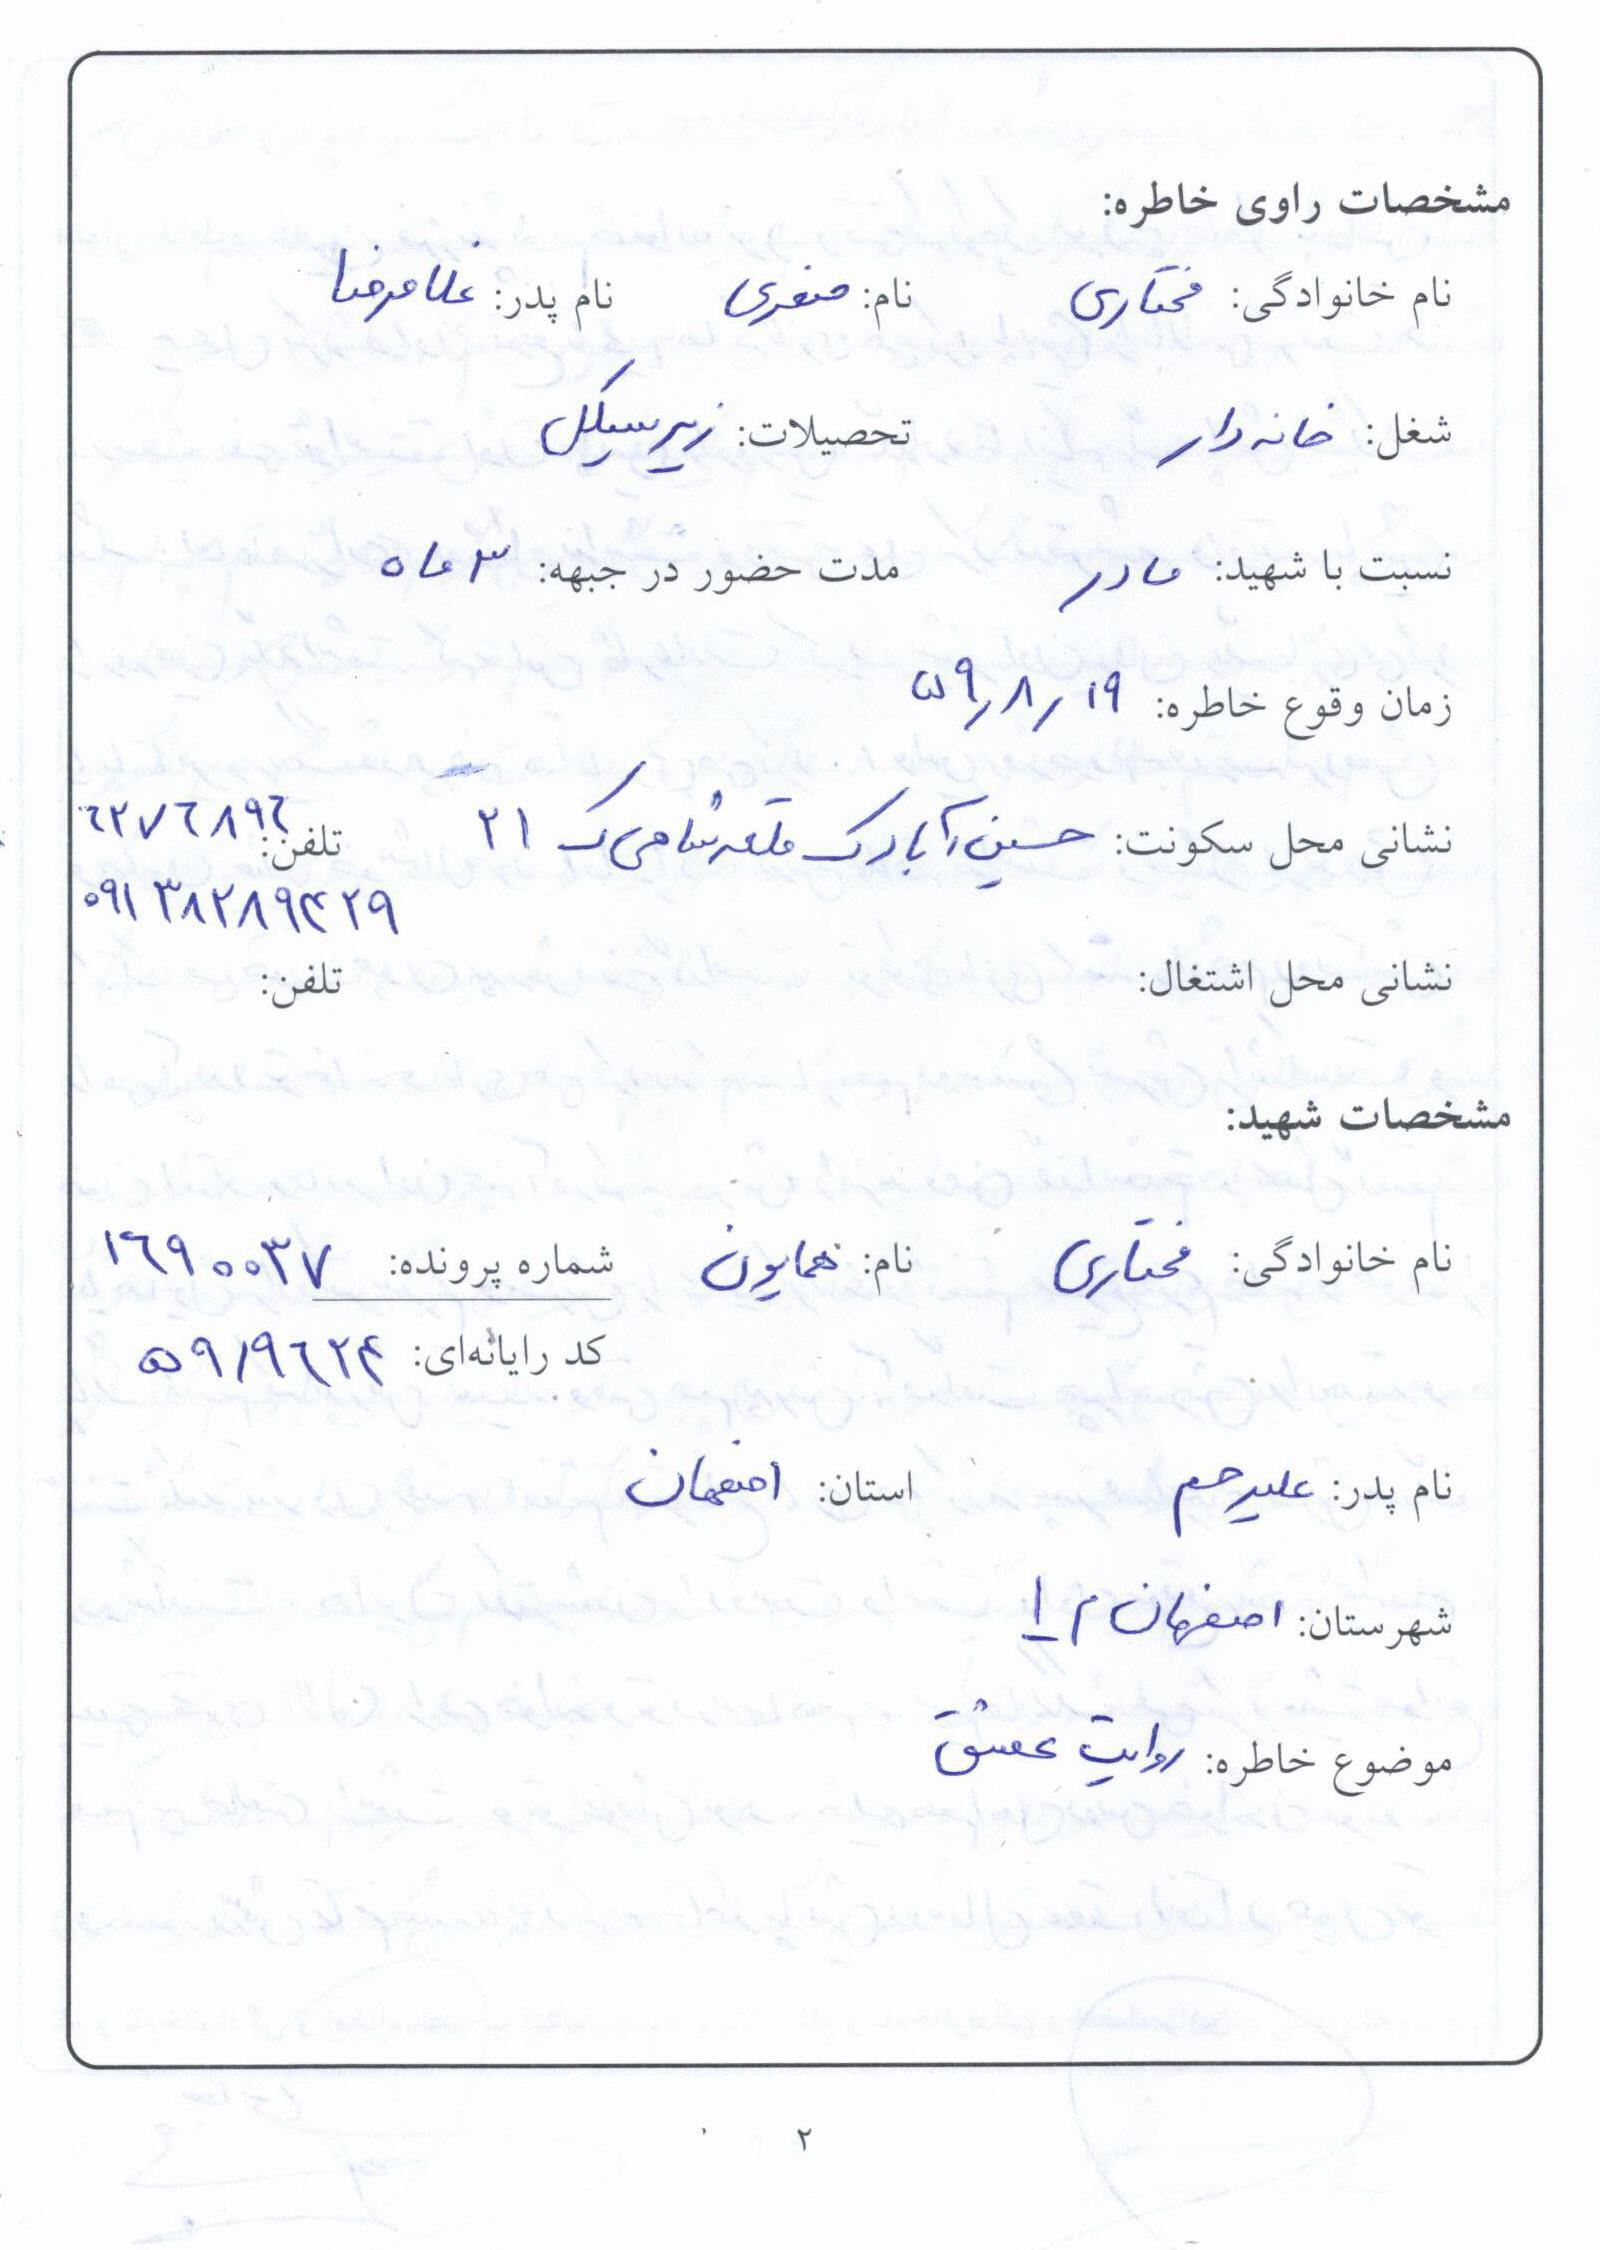 مشخصات راوی خاطره:
نام خانوادگی: مختاری نام: صغری نام پدر: غلامرضا
شغل: خانه دار تحصیلات: زیر سیکل
نسبت با شهید: مادر مدت حضور در جبهه: ۳ ماه
زمان وقوع خاطره: ۵۹/۸/۱۹
نشانی محل سکونت: حسین آبادک قلعه شامی ک ۲۱ تلفن: ۶۲۷۶۸۹۶
۰۹۱۳۸۲۸۹۴۲۹
نشانی محل اشتغال: تلفن:
مشخصات شهید:
نام خانوادگی: مختاری نام: همایون شماره پرونده: ۱۶۹۰۰۳۷
کد رایانه‌ای: ۵۹۱۹۶۲۴
نام پدر: علیرحم استان: اصفهان
شهرستان: اصفهان م ۱
موضوع خاطره: روایت عشق
۲